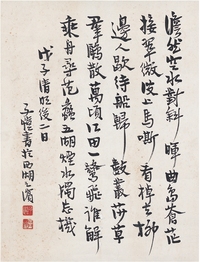 澹然空水對斜暉曲島蒼茫
接翠微波上馬嘶看棹去柳
邊人歇待船歸數叢莎草
羣鷗散萬頃江田一鷺飛誰解
乘舟尋范蠡五湖煙水獨忘機
戊子清明後二日
子愷書於西湖之濱